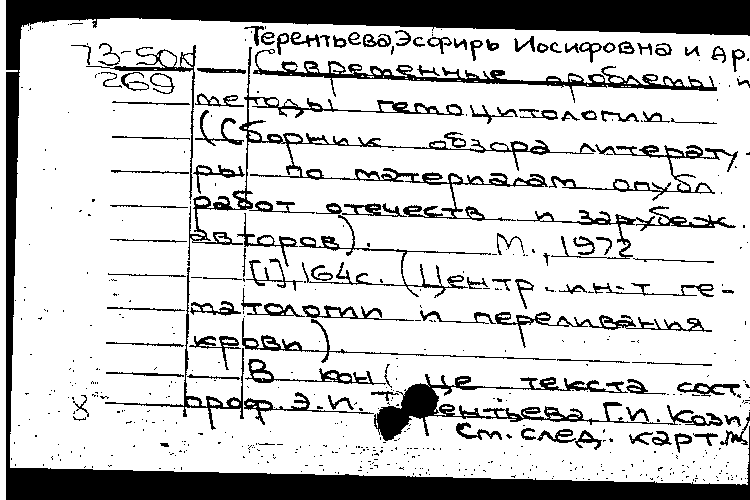 Терентьева, Эсфирь Иосифовна и др.
73-50к
269
Современные проблемы и
методы гемоцитологии.
(Сборник обзора литерату-
ры по материалам опубл
работ отечеств и зарубеж.
авторов). М., 1972
[1], 164с. (Центр. ин-т ге-
матологии и переливания
крови).
В конце текста сост.
проф. Э.И. Терентьева, Г.И. Кози
См. след. карт.